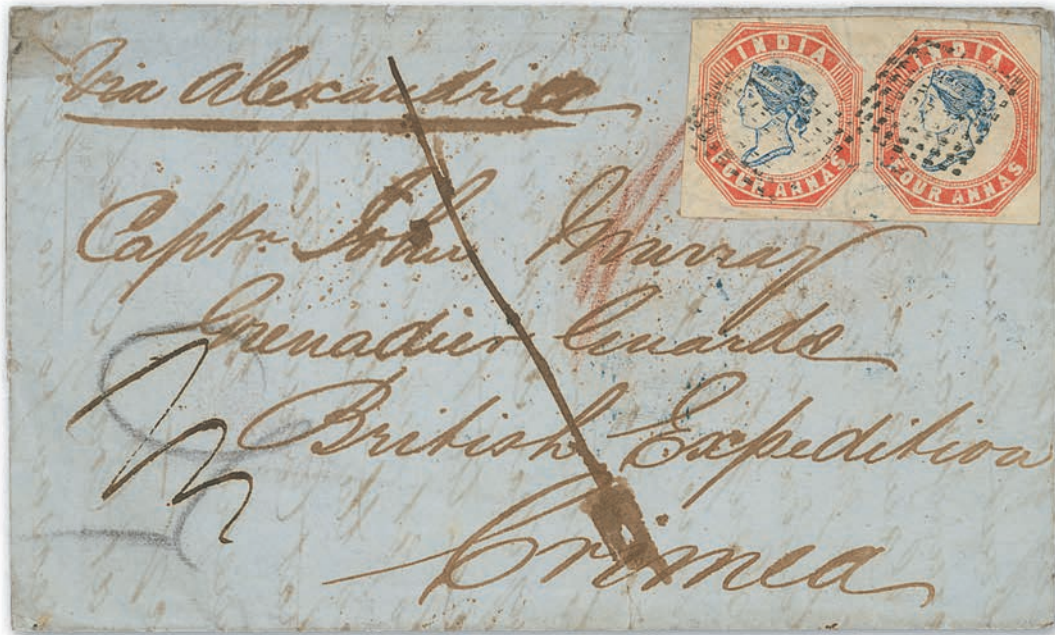 Via Alexandria
INDIA INDIA
FOUR ANNAS FOUR ANNAS
Captn John Murray
Grenadier Guards
British Expedition
Crimea